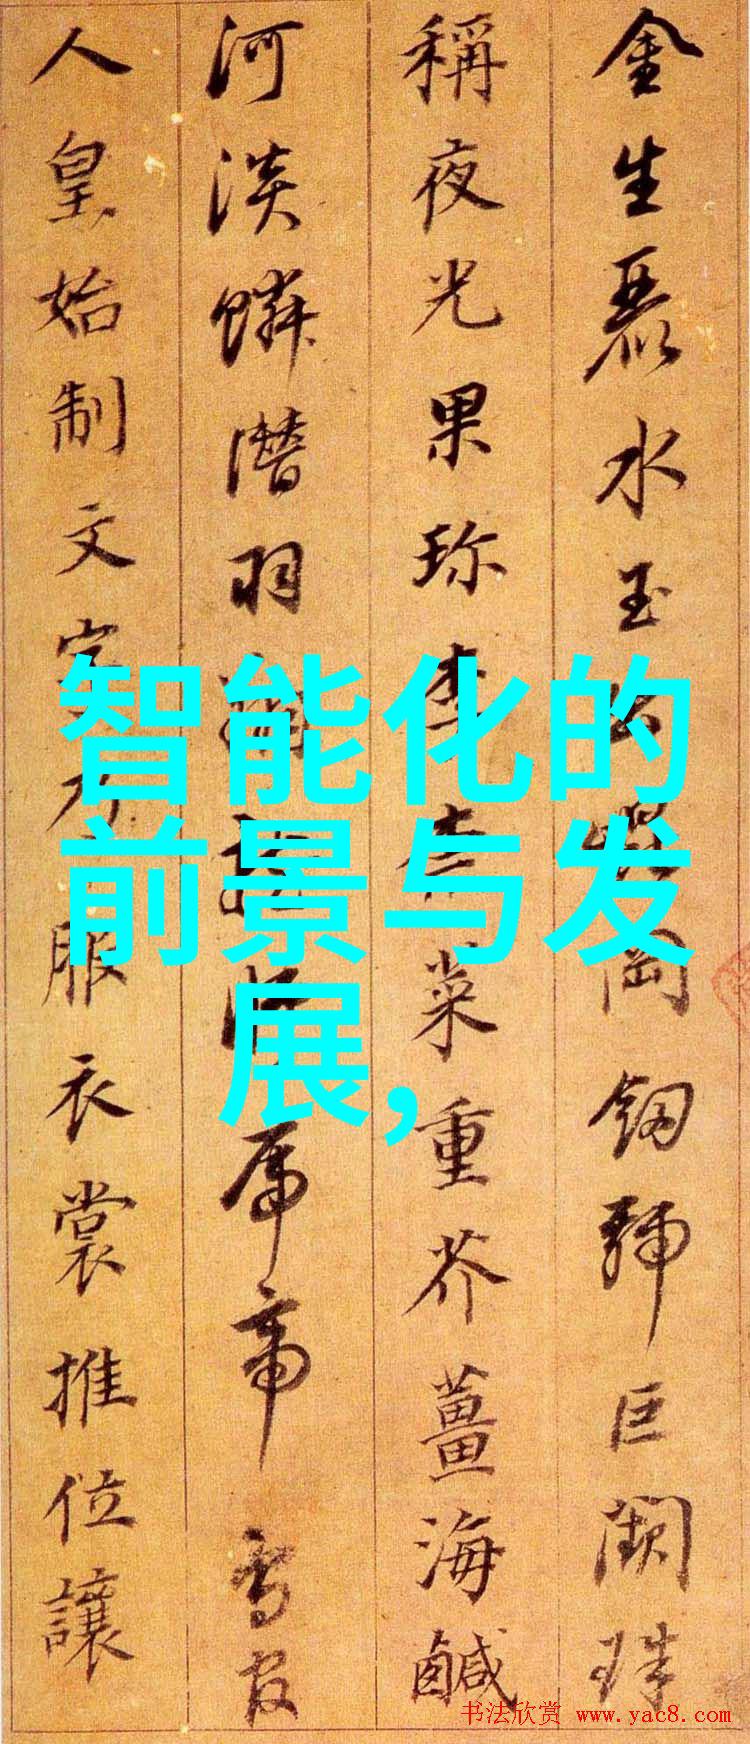 金生麗水玉出崑岡釰號巨闕珠
稱夜光果珍李柰菜重芥薑海鹹
河淡鱗潛羽翔龍帝鳥官
人皇始制文字乃服衣裳推位讓
智能化的
前景与发
展,
书法欣赏 www.yac8.com